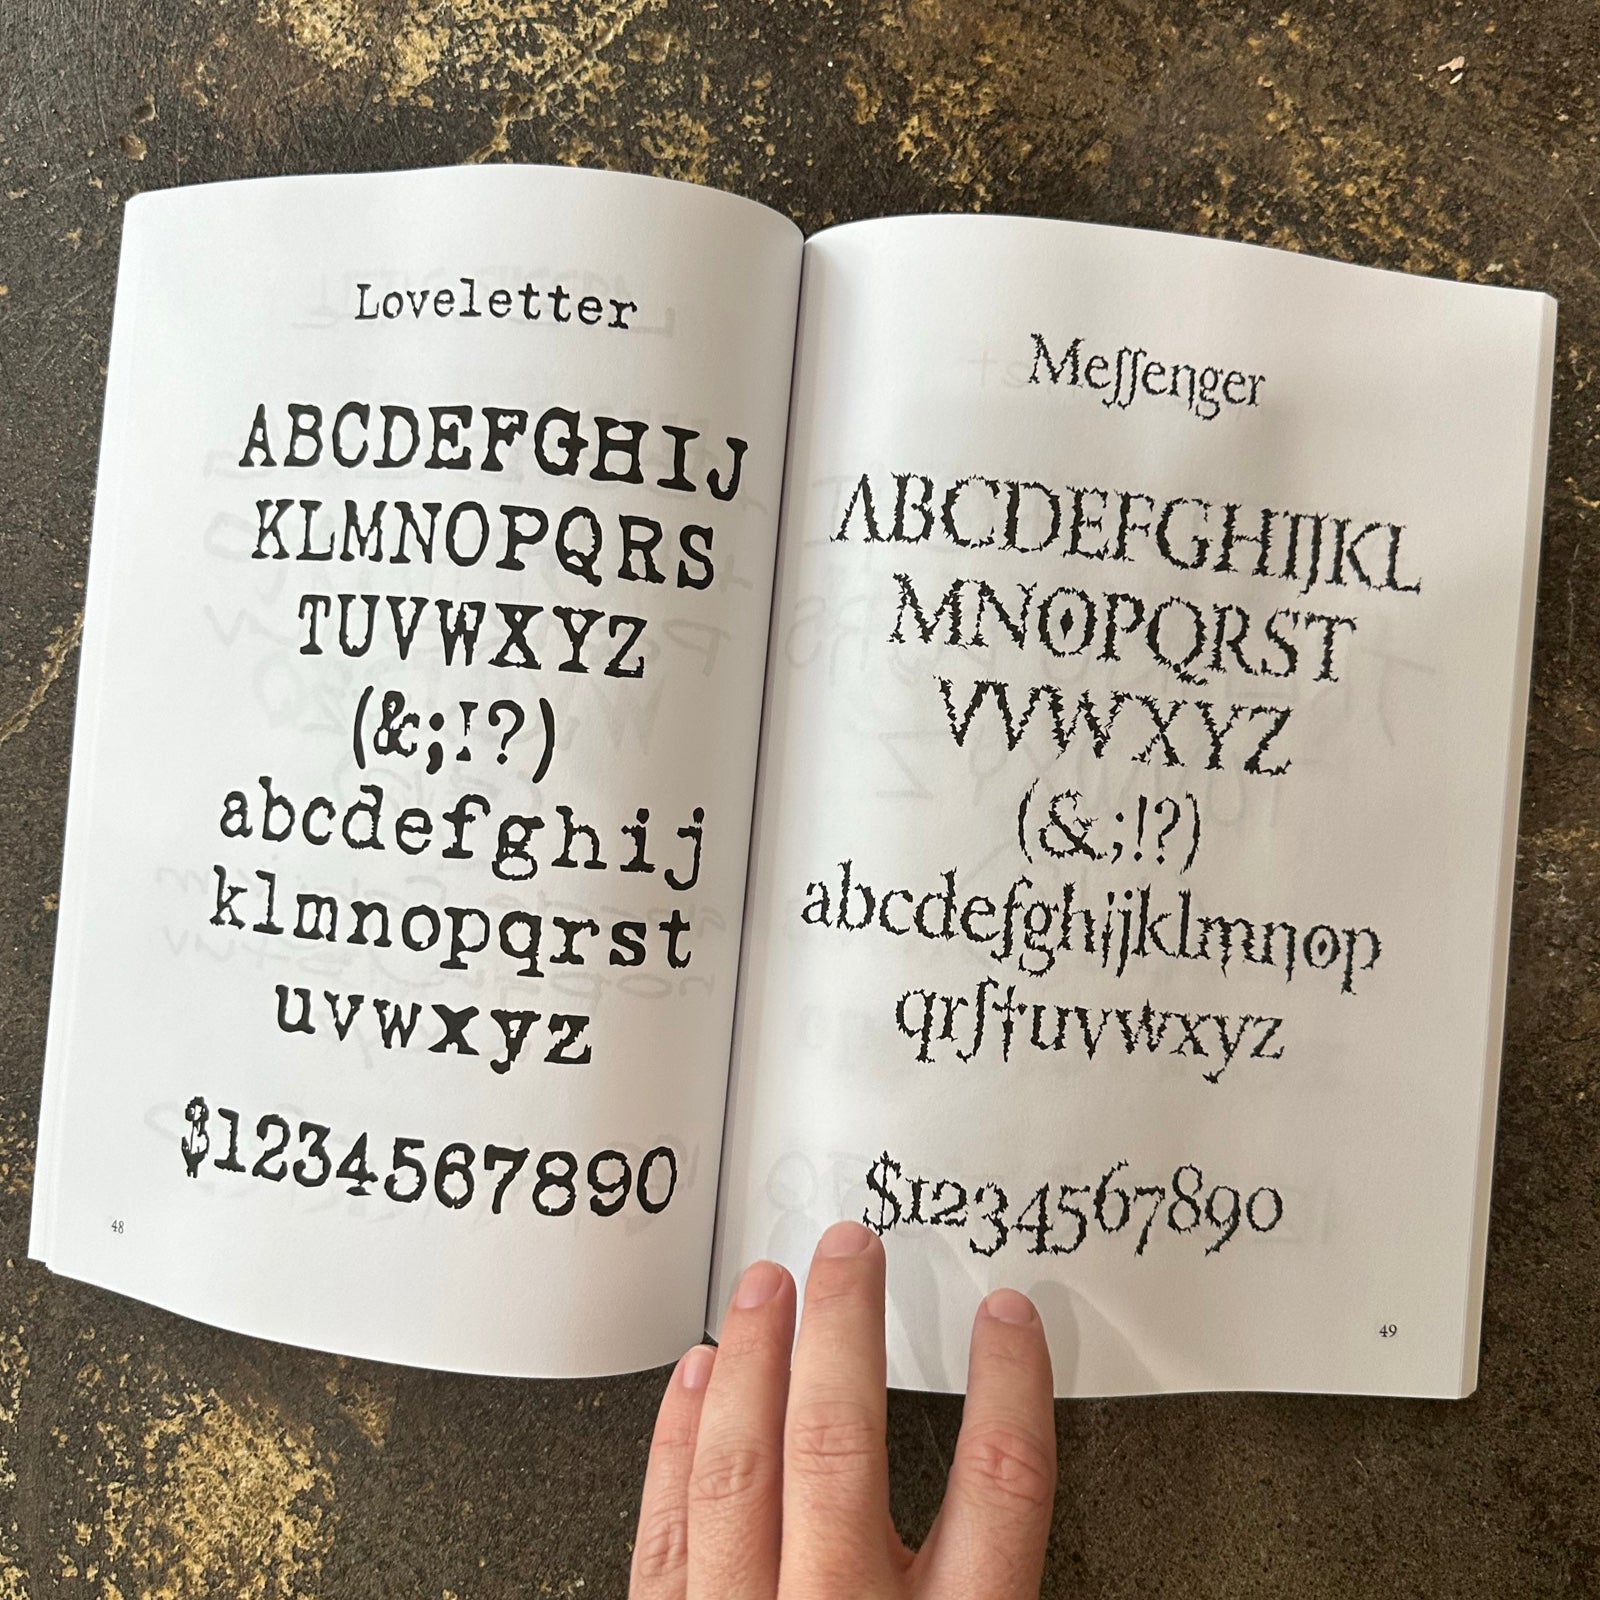 Loveletter
ABCDEFGHIJ
KLMNOPQRS
TUVWXYZ
(&;!?)
abcdefghij
klmnopqrst
uvwxyz
$1234567890
48
Meſſenger
ABCDEFGHIJKL
MNOPQRST
VVWXYZ
(&;!?)
abcdefghijklmnop
qrſtuvwxyz
$1234567890
49